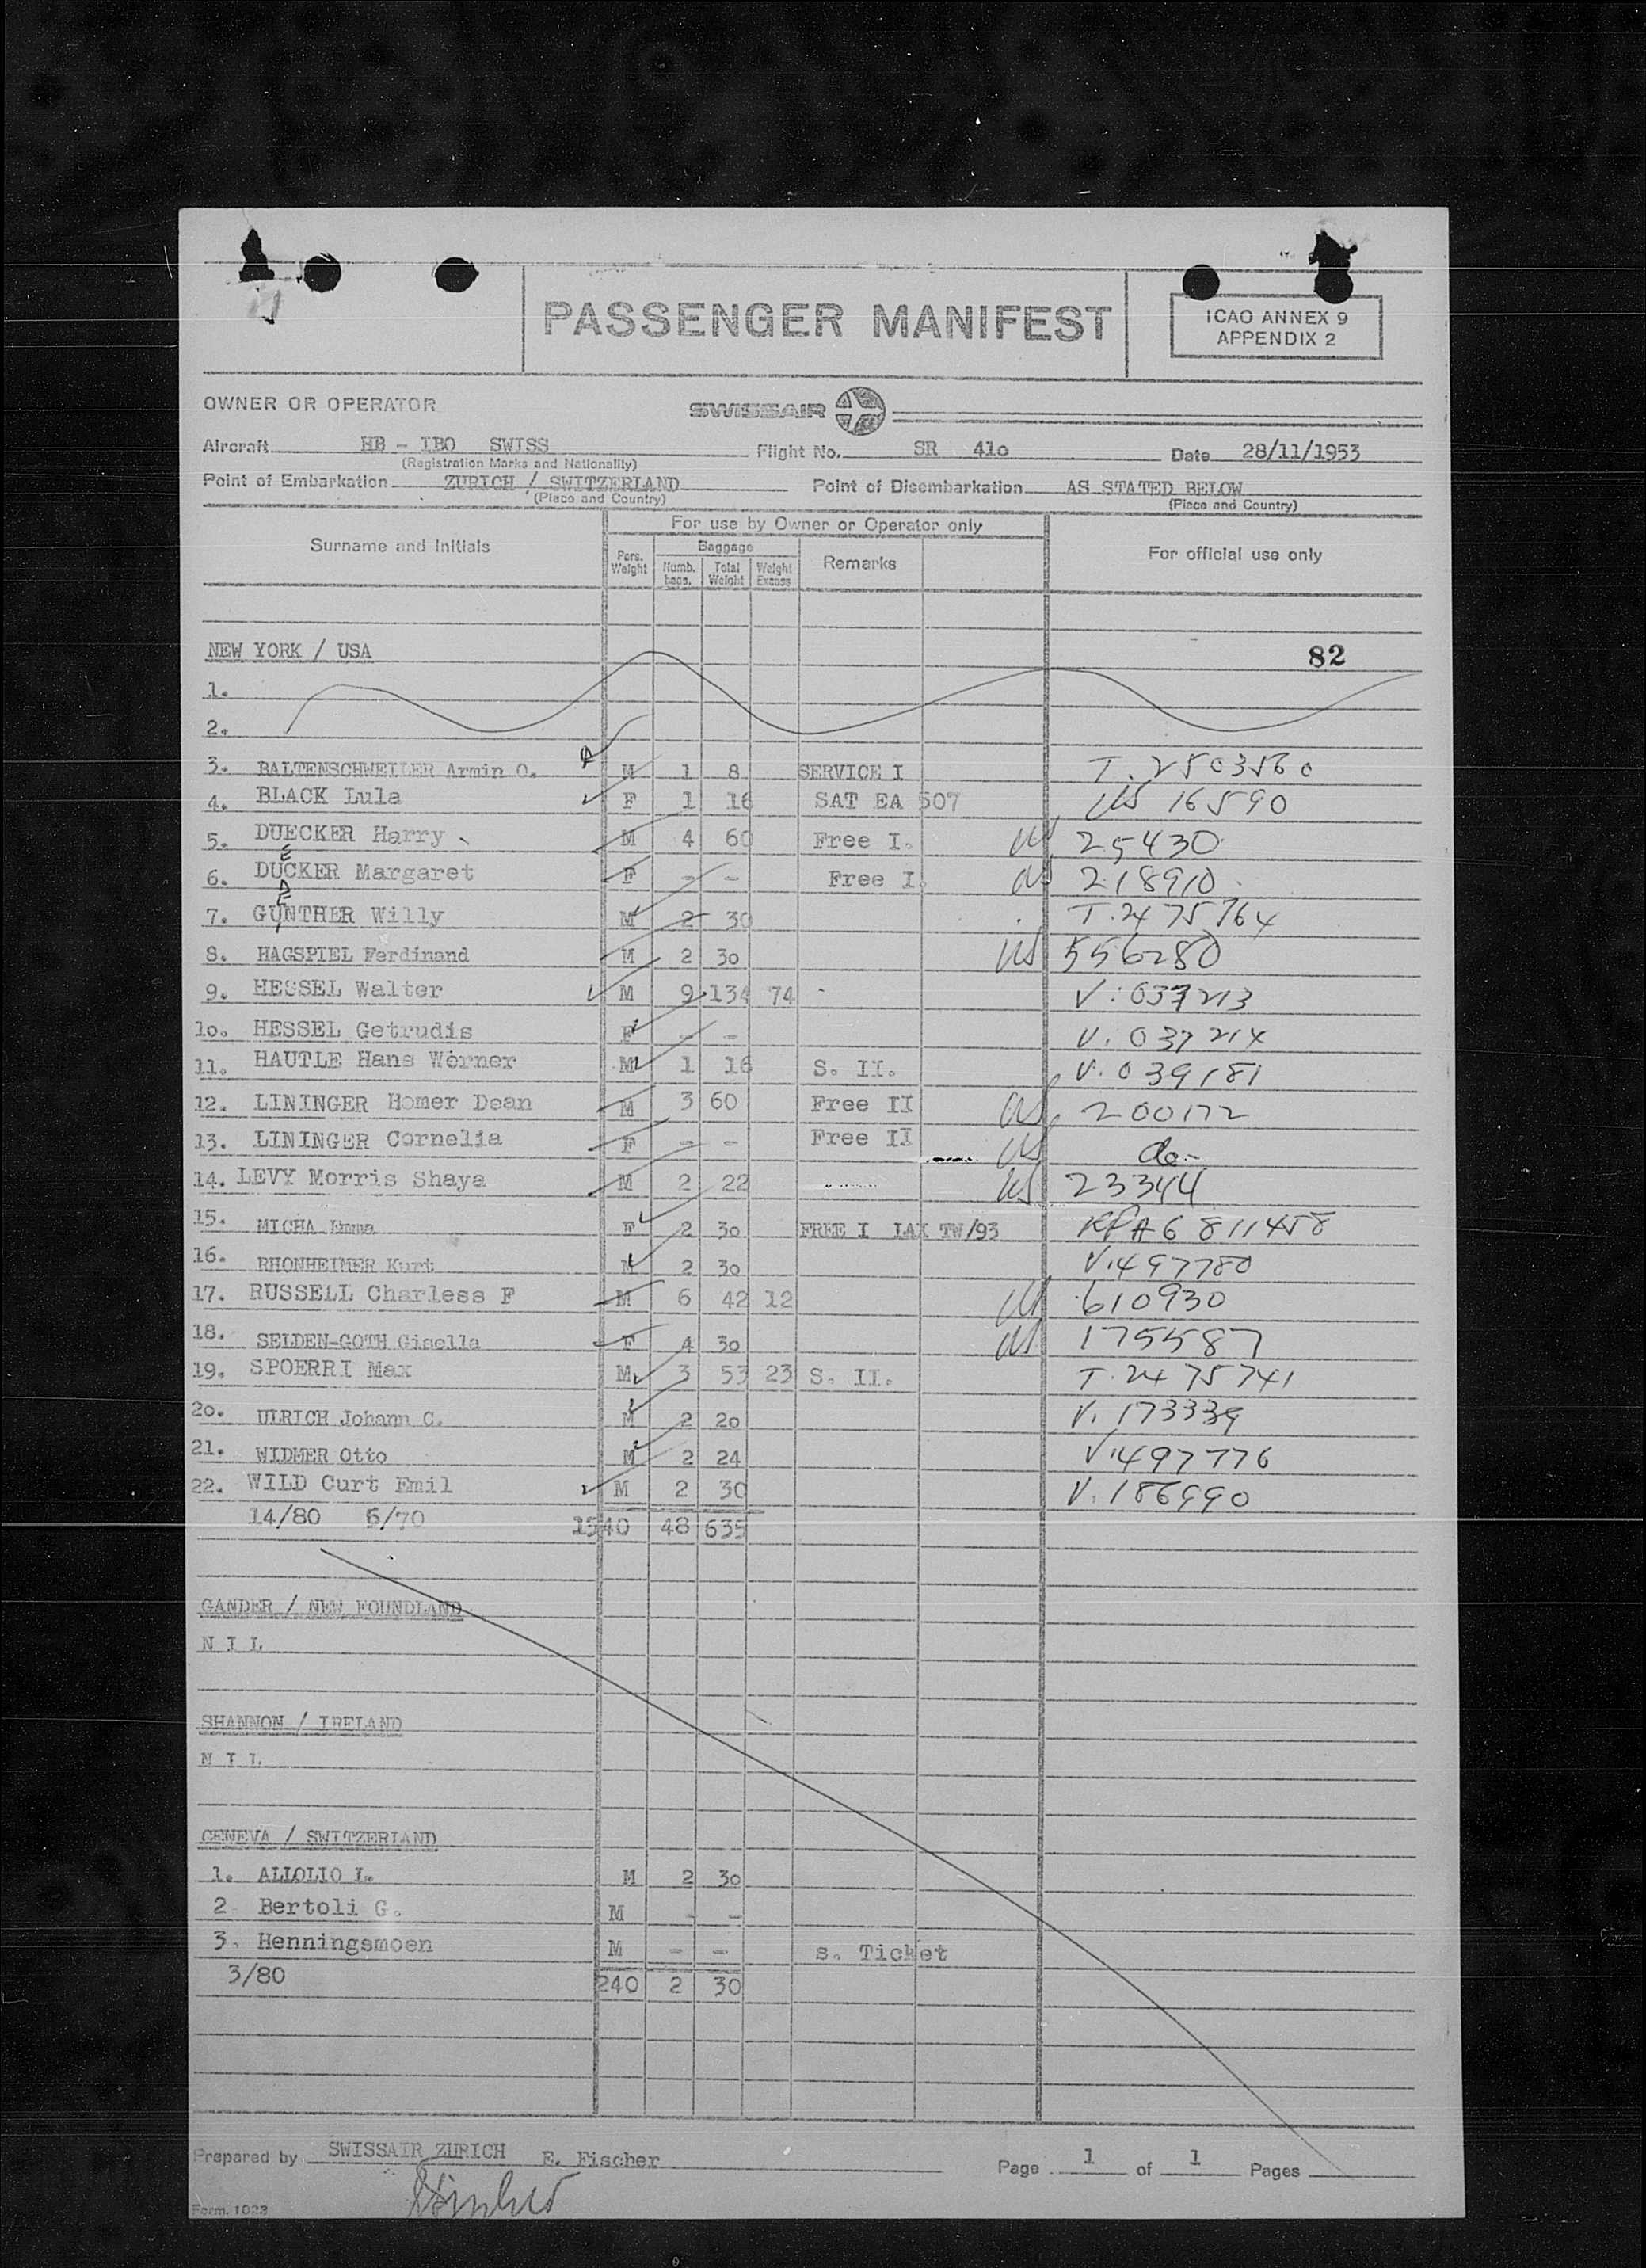 PASSENGER MANIFEST
ICAO ANNEX 9
APPENDIX 2
OWNER OR OPERATOR SWISSAIR
Aircraft HB - IBO SWISS Flight No. SR 41o Date 28/11/1953
(Registration Marks and Nationality)
Point of Embarkation ZURICH / SWITZERLAND Point of Disembarkation AS STATED BELOW
(Place and Country) (Place and Country)
Surname and Initials For use by Owner or Operator only For official use only
Pers. Weight Baggage Remarks
Numb. bags. Total Weight Weight Excess
NEW YORK / USA 82
1.
2.
3. BALTENSCHWEILER Armin O. M 1 8 SERVICE I T. 2503560
4. BLACK Lula F 1 16 SAT EA 507 US 16590
5. DUECKER Harry M 4 60 Free I. US 25430
6. DUCKER Margaret F - - Free I. US 218910
E
7. GUNTHER Willy M 2 30 T. 2475764
E
8. HAGSPIEL Ferdinand M 2 3o US 556280
9. HESSEL Walter M 9 134 74 V. 037213
1o. HESSEL Getrudis F - - V. 037214
11. HAUTLE Hans Werner M 1 16 S. II. V. 039181
12. LININGER Homer Dean M 3 60 Free II US 200172
13. LININGER Cornelia F - - Free II US do-
14. LEVY Morris Shaya M 2 22 US 23344
15. MICHA Emma F 2 3o FREE I LAX TW/93 A6 811458
16. RHONHEIMER Kurt M 2 3o V. 497780
17. RUSSELL Charless F M 6 42 12 US 610930
18. SELDEN-GOTH Gisella F 4 3o US 175587
19. SPOERRI Max M 3 53 23 S. II. T. 2475741
2o. ULRICH Johann C. M 2 2o V. 173339
21. WIDMER Otto M 2 24 V. 497776
22. WILD Curt Emil M 2 30 V. 186990
14/80 6/70 1540 48 635
GANDER / NEW FOUNDLAND
N I L
SHANNON / IRELAND
N I L
GENEVA / SWITZERLAND
1. ALLOLIO L. M 2 3o
2 Bertoli G. M - -
3. Henningsmoen M - - s. Ticket
3/80 240 2 30
Prepared by SWISSAIR ZURICH E. Fischer Page 1 of 1 Pages
Form. 1023